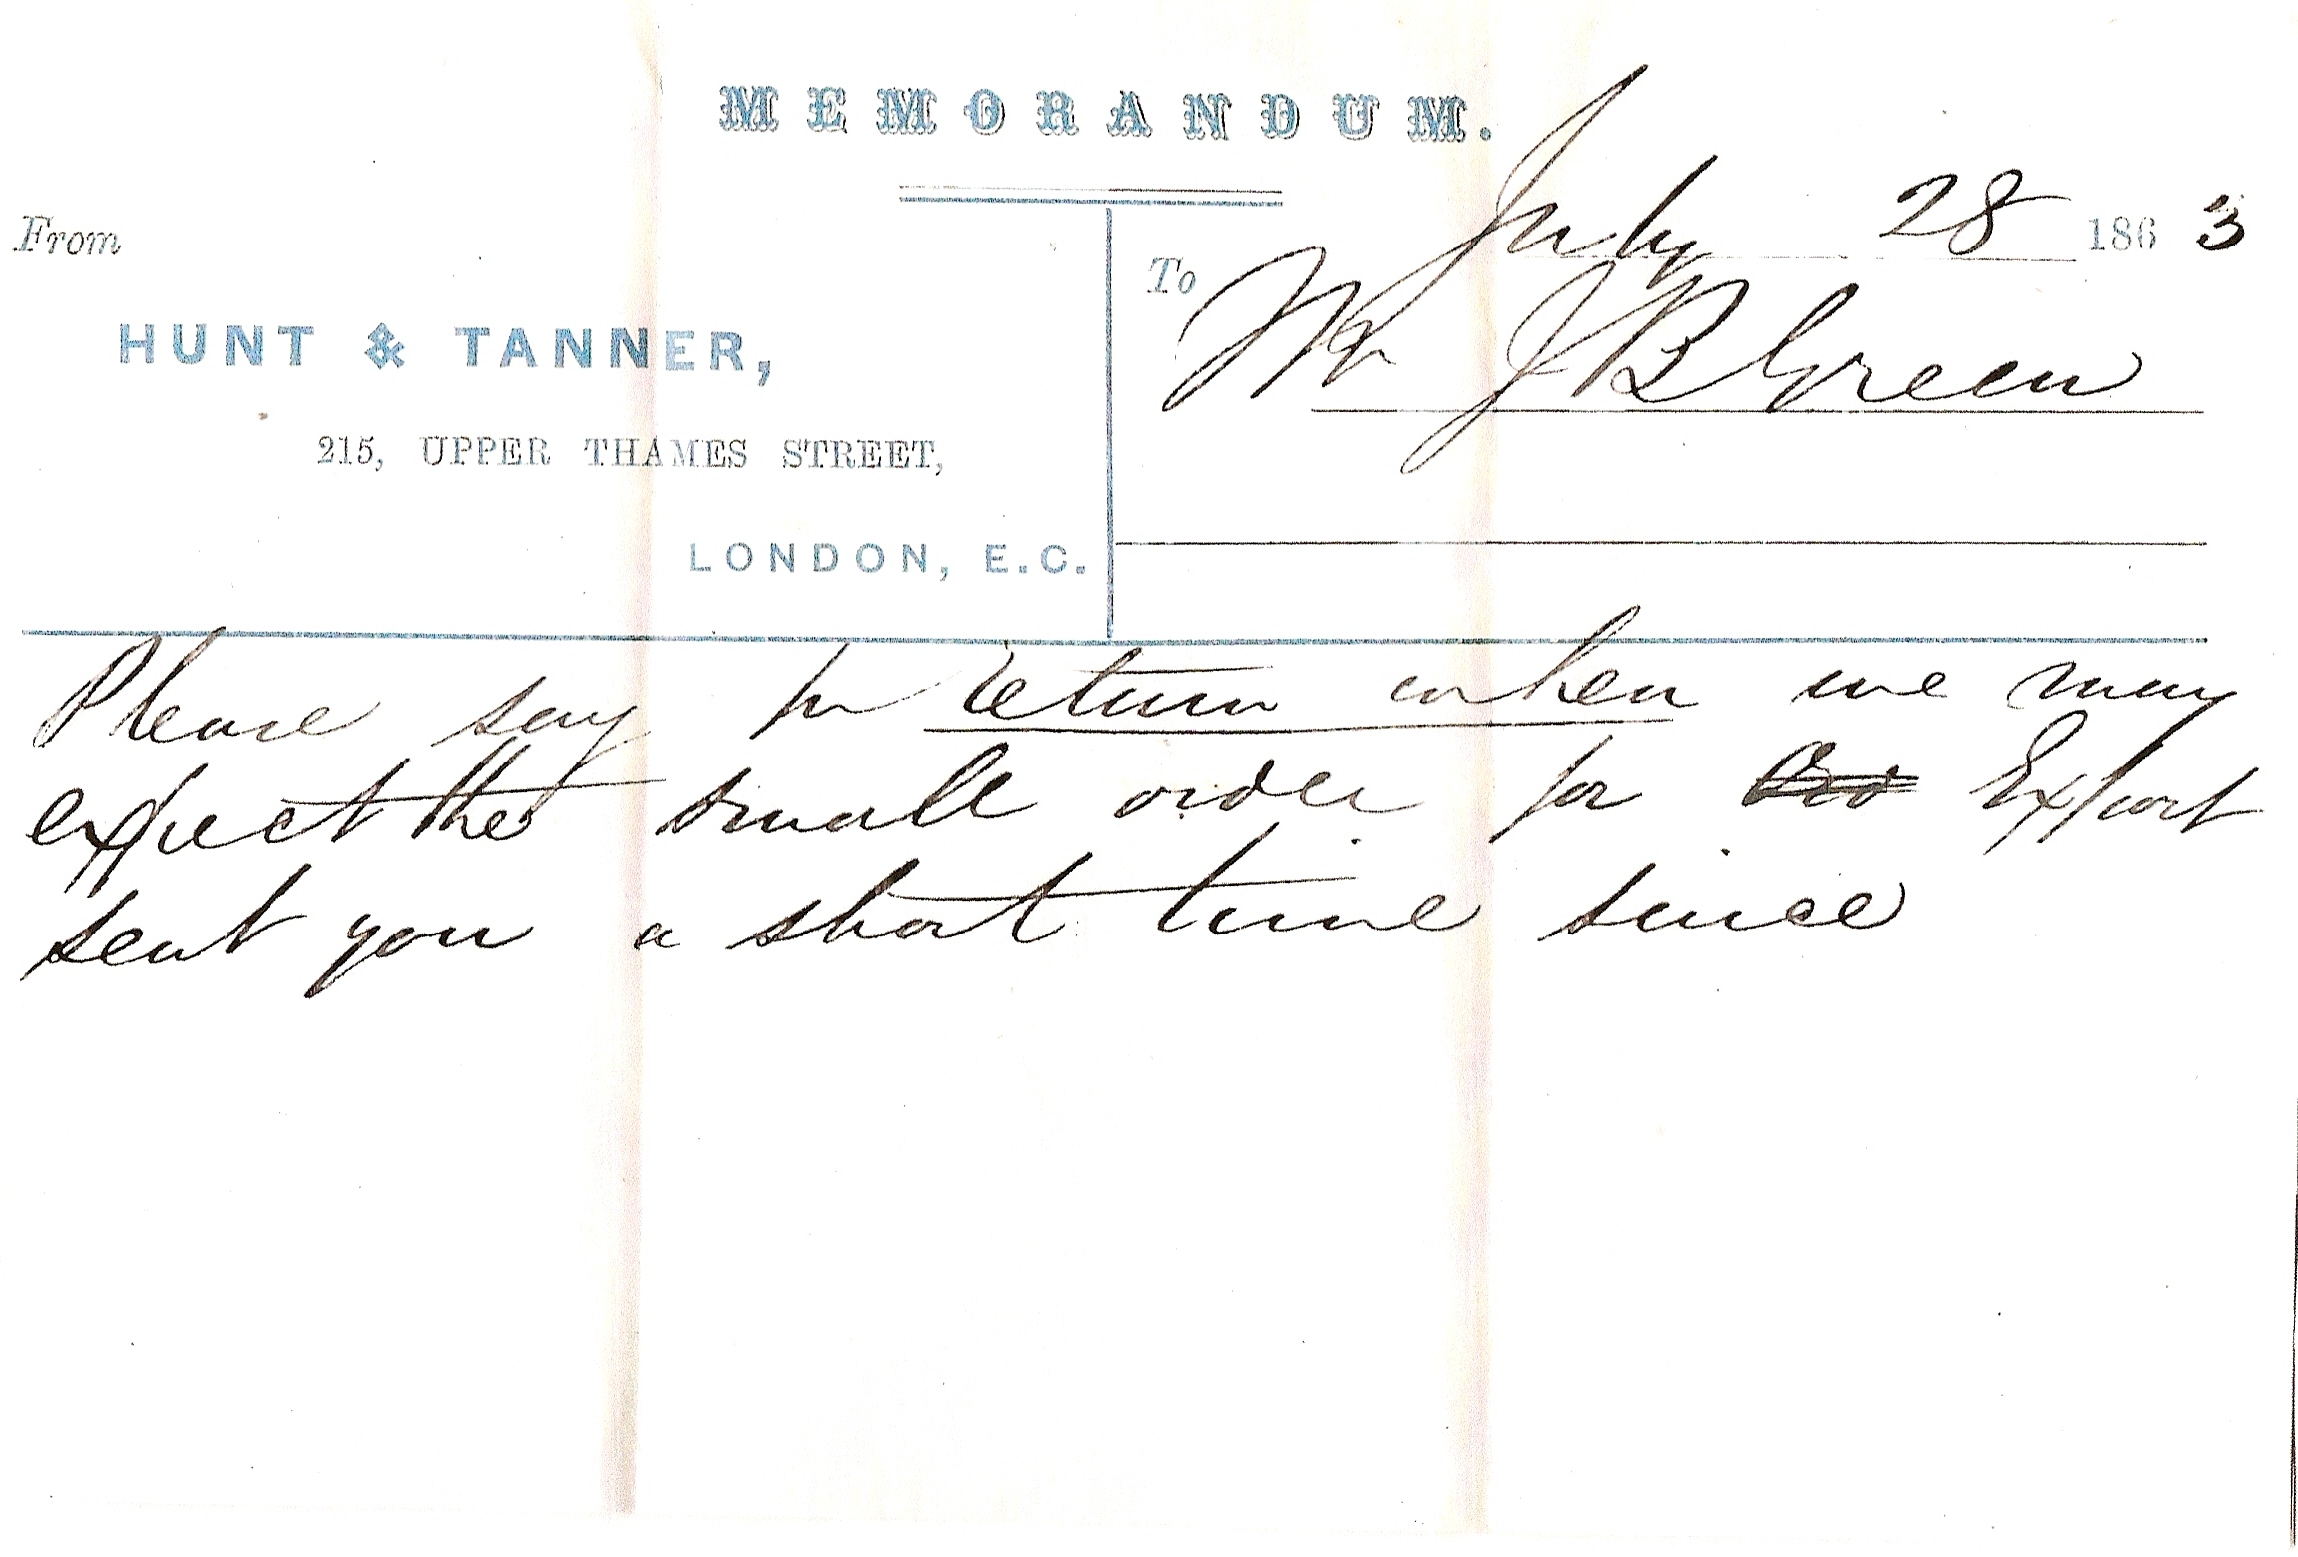 MEMORANDUM.
July 28 1863
From
To
HUNT & TANNER,
Mr J B Green
215, UPPER THAMES STREET,
LONDON, E.C.
Please say pr return when we may
expect the small order for Export
sent you a short time since